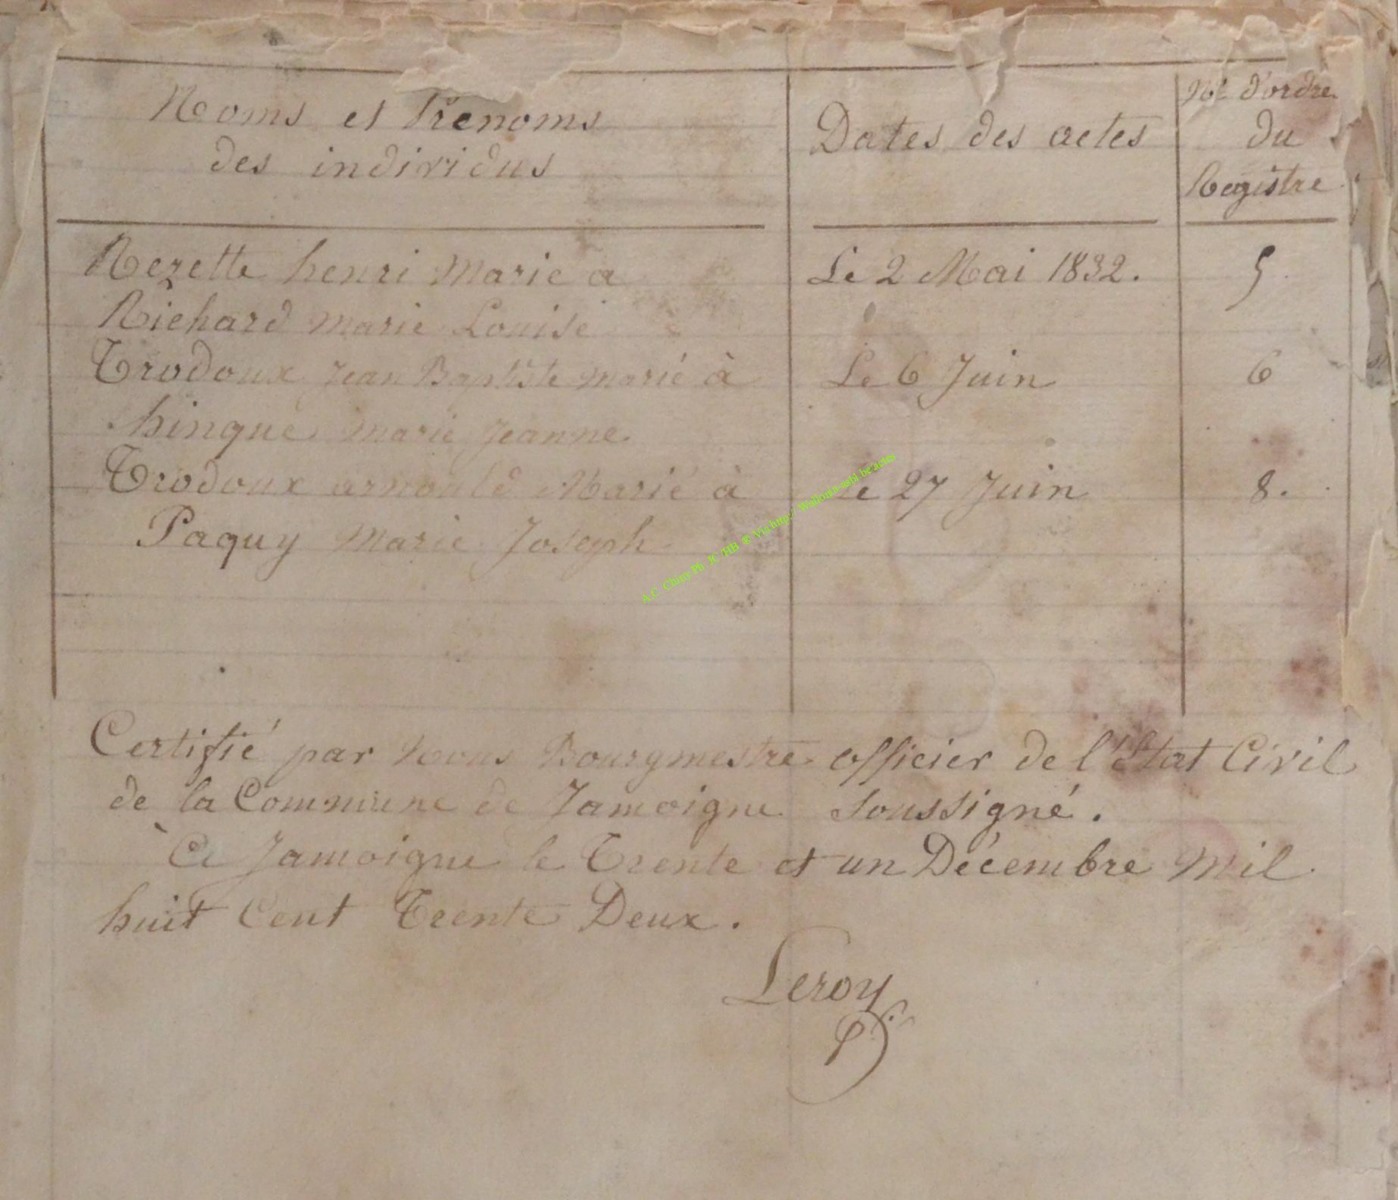 Noms et Prenoms
des individus
Dates des actes
Nos d'ordre
du
Registre
Rezette henri Marie a
Le 2 Mai 1832.
5
Richard marie Louise
Trodoux Jean Baptiste Marié à
Le 6 Juin
6
hinque marie Jeanne
Trodoux arnould Marié à
Le 27 Juin
8.
Paquy Marie Joseph
Certifié par Nous Bourgmestre officier de l'état Civil
de la Commune de Jamoigne soussigné.
à Jamoigne le Trente et un Décembre Mil
huit Cent Trente Deux.
Leroy